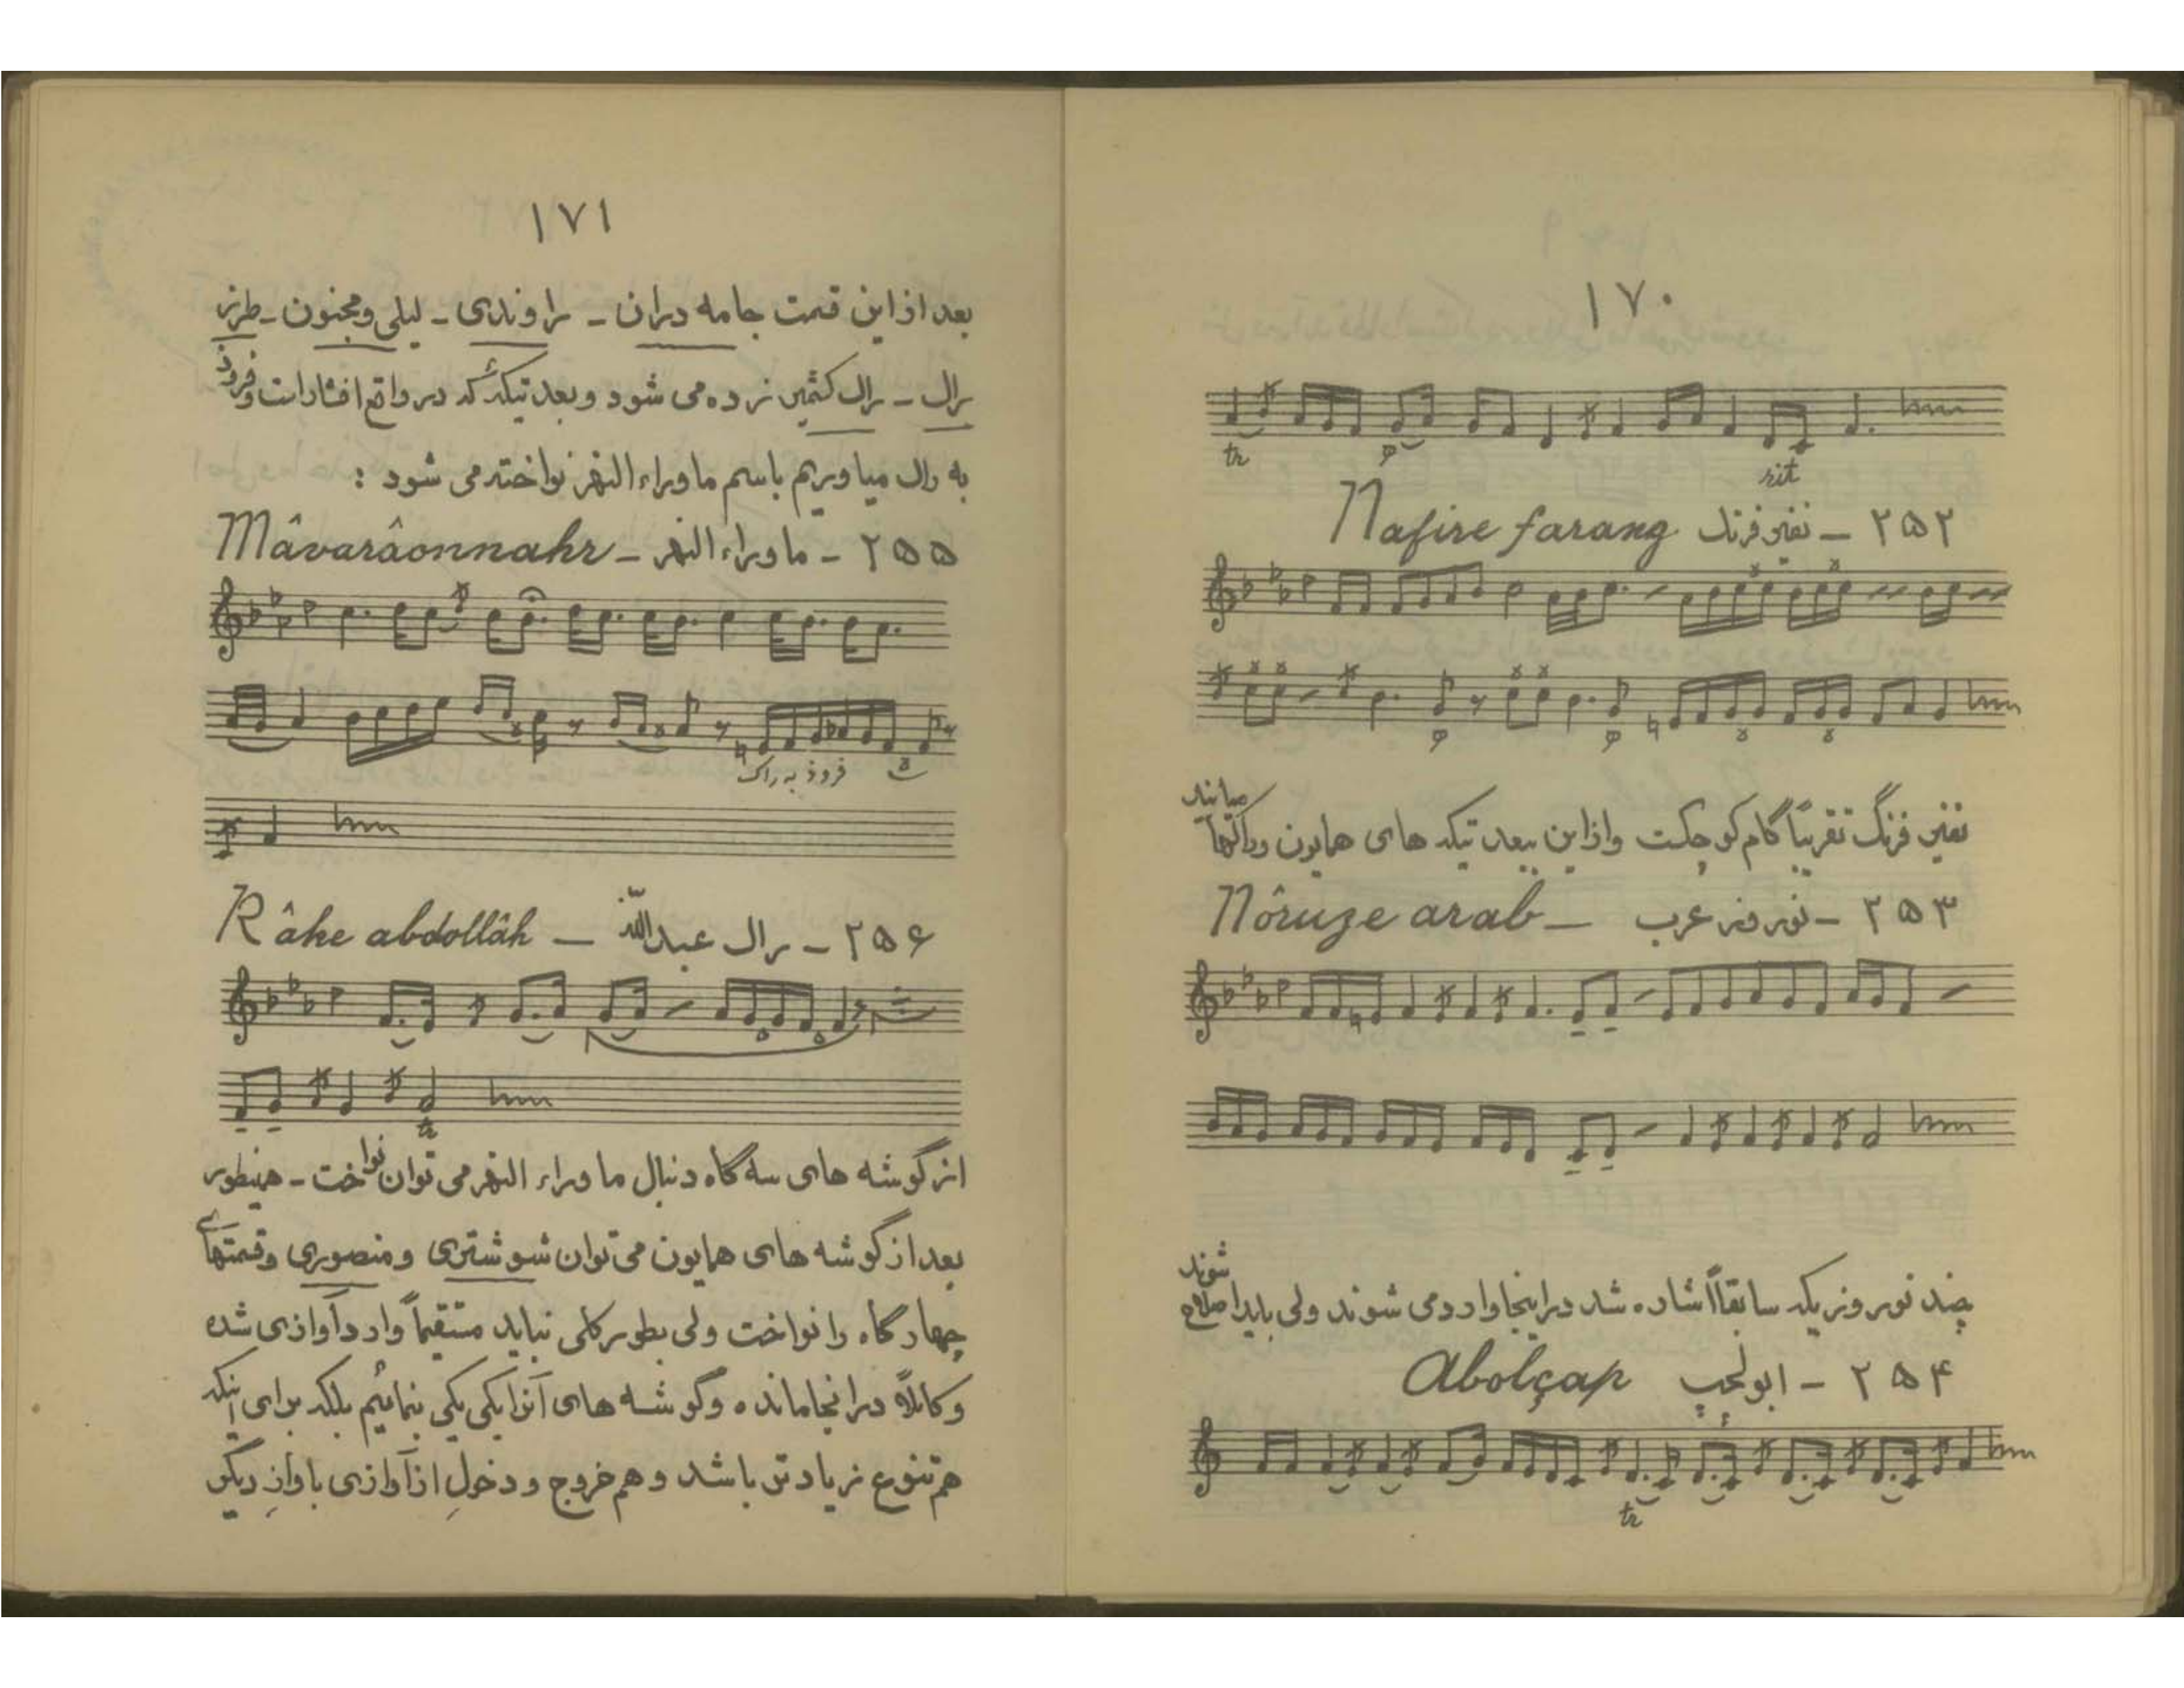 ۱۷۰
tr
rit
۲۵۲ - نفیر فرنگ Nafire farang
نفیر فرنگ تقریباً گام کوچکست و از این ببعد تیکه های همایون و راکها میایند
۲۵۳ - نوروز عرب - Nôruze arab
چند نوروزیکه سابقاً اشاره شد در اینجا وارد می شوند ولی باید اصلاح شوند
۲۵۴ - ابولچپ Abolçap
tr
۱۷۱
بعد از این قسمت جامه دران - راوندی - لیلی و مجنون - طرز
راک - راک کشمیر زده می شود و بعد تیکه ئیکه در واقع افشار است و فرود
به راک میاوریم باسم ماوراء النهر نواخته می شود :
۲۵۵ - ماوراء النهر - Mâvarâonnahr
فرود به راک
۲۵۶ - راک عبدالله - Râke abdollâh
tr
از گوشه های سه گاه دنبال ماوراء النهر می توان نواخت - همینطور
بعد از گوشه های همایون می توان شوشتری و منصوری و قسمتهای
چهارگاه را نواخت ولی بطور کلی نباید مستقیماً وارد آوازی شده
و کاملاً در انجا مانده و گوشه های آنرا یکی یکی بنمائیم بلکه برای اینکه
هم تنوع زیادتر باشد و هم خروج و دخول از آوازی باوازِ دیگر